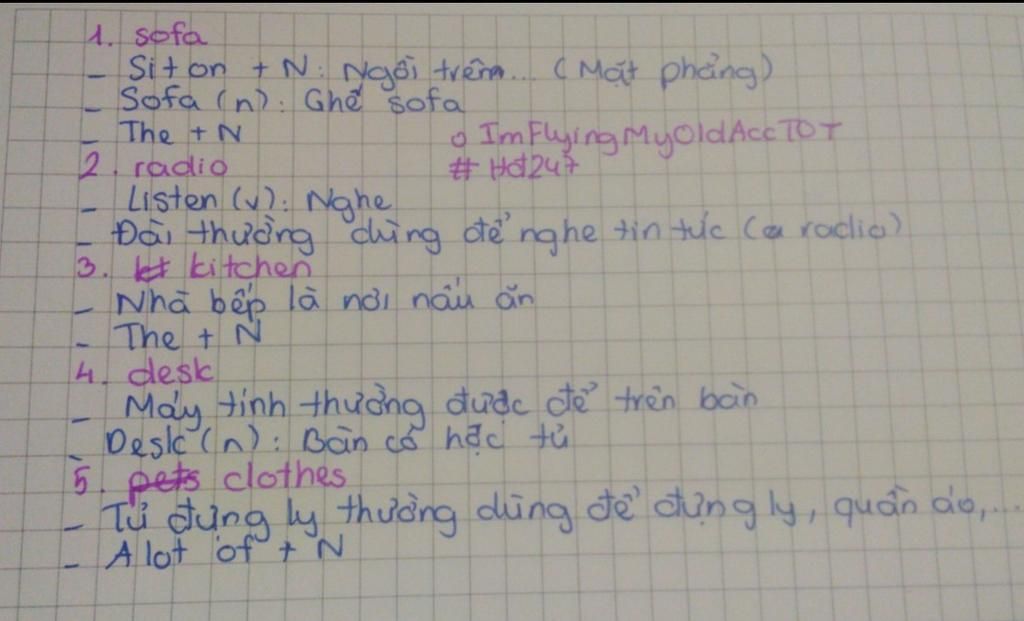 1. sofa
- Sit on + N: Ngồi trên... (Mặt phẳng)
- Sofa (n): Ghế sofa
- The + N
o ImFlyingMyOldAccTOT
2. radio
# Hd247
- Listen (v): Nghe
- Đài thường dùng để nghe tin tức (a radio)
3. kitchen
- Nhà bếp là nơi nấu ăn
- The + N
4. desk
- Máy tính thường được để trên bàn
- Desk (n): Bàn có hộc tủ
5. pets clothes
- Tủ đựng ly thường dùng để đựng ly, quần áo,...
- A lot of + N